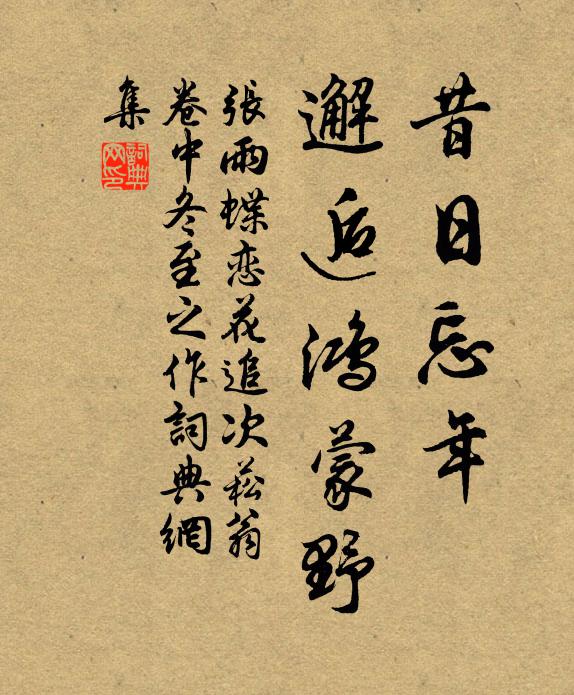 昔日忘年
邂逅鴻蒙野
張雨蝶恋花追次菘翁
卷中冬至之作詞典網
集
詞典
网印